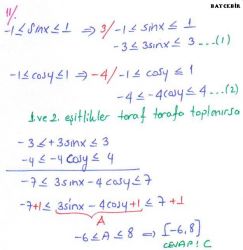 BAYCEBİR
11/
-1 ≤ sinx ≤ 1 ⟹ 3/ -1 ≤ sinx ≤ 1
-3 ≤ 3sinx ≤ 3 ...(1)
-1 ≤ cosy ≤ 1 ⟹ -4/ -1 ≤ cosy ≤ 1
-4 ≤ -4cosy ≤ 4 ...(2)
1 ve 2. eşitlikler taraf tarafa toplanırsa
-3 ≤ +3sinx ≤ 3
-4 ≤ -4cosy ≤ 4
-7 ≤ 3sinx - 4cosy ≤ 7
-7+1 ≤ 3sinx - 4cosy + 1 ≤ 7+1
A
-6 ≤ A ≤ 8 ⟹ [-6,8]
CEVAP: C